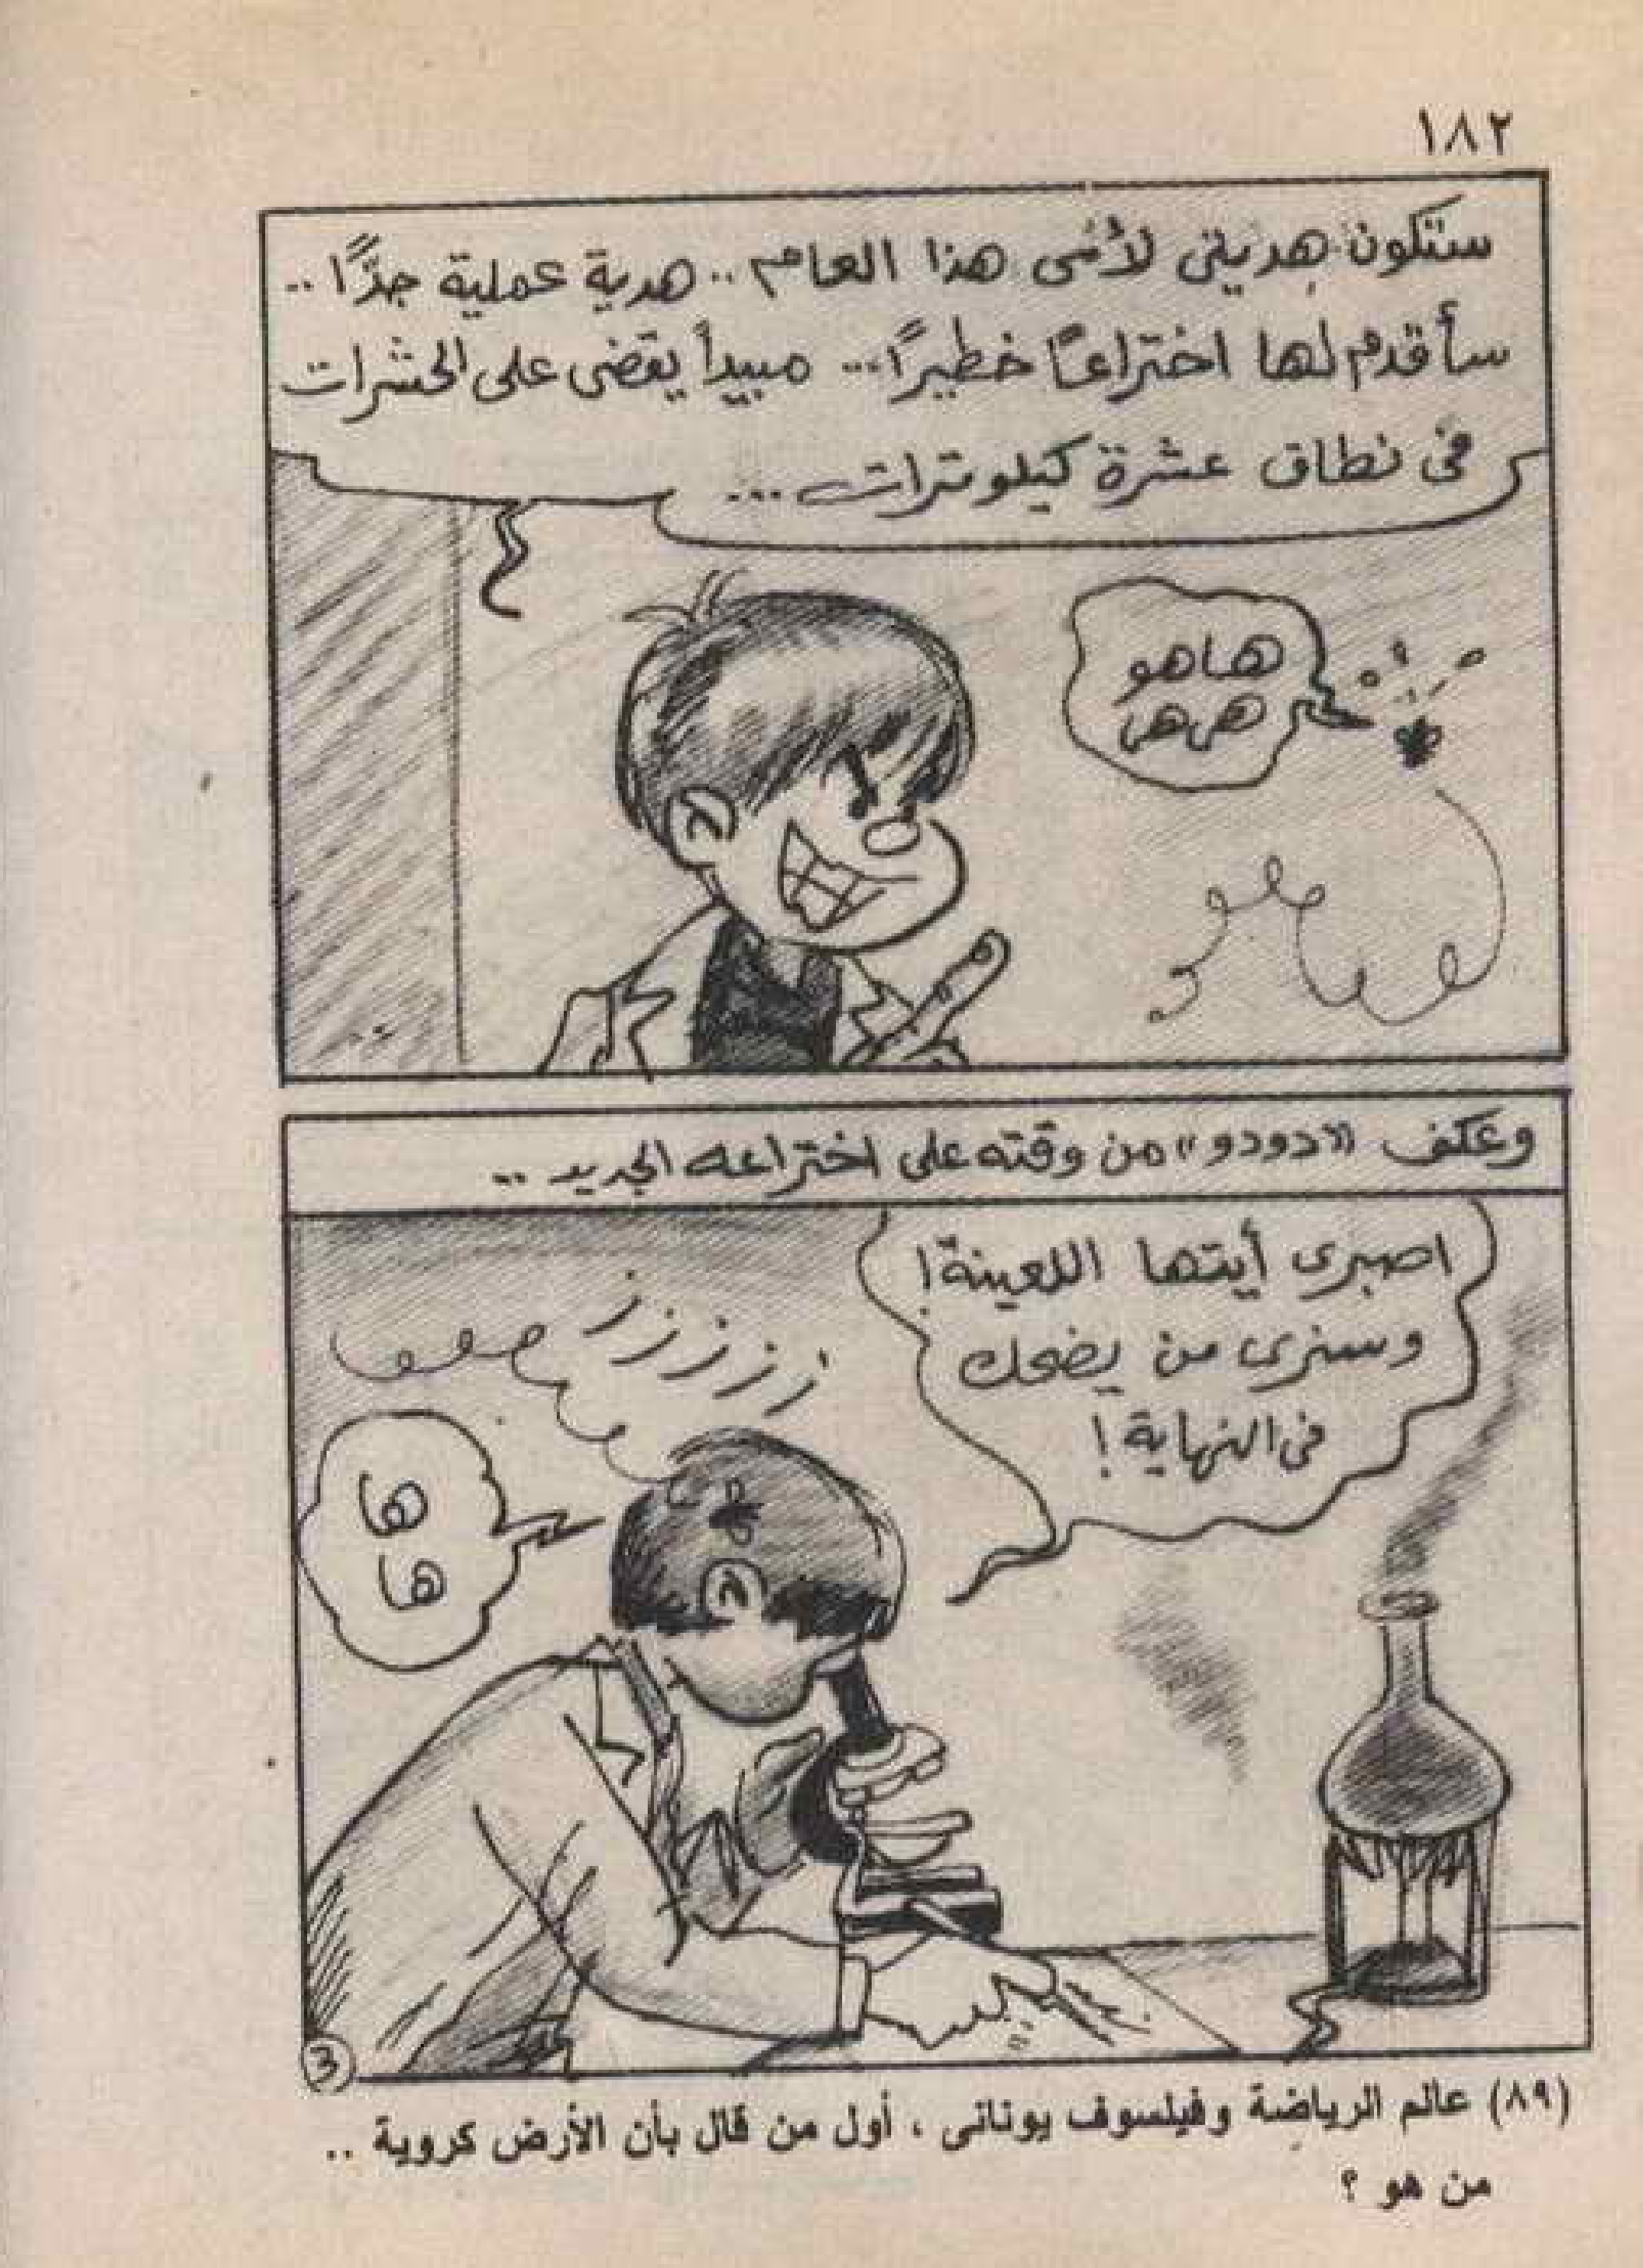 ١٨٢
ستكون هديتى لأمى هذا العام .. هدية عملية جدًّا ..
سأقدم لها اختراعًا خطيرًا ... مبيداً يقضى على الحشرات
فى نطاق عشرة كيلومترات ...
هاهو
هى هى
وعكف «دودو» من وقته على اختراعه الجديد ..
اصبرى أيتها اللعينة !
وسنرى من يضحك
فى النهاية !
ز ز ز ز ز
ها
ها
3
(٨٩) عالم الرياضة وفيلسوف يونانى ، أول من قال بأن الأرض كروية ..
من هو ؟